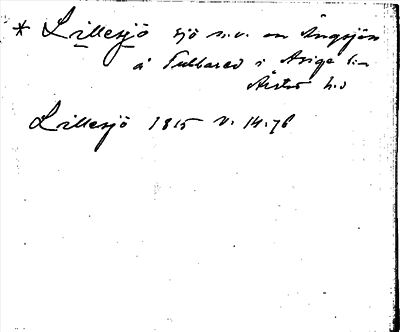 * Lillesjö sjö n.v. om Ängsjön
å Tullared i Asige sn
Årstad h.d
Lillesjö 1815 v. 14.76